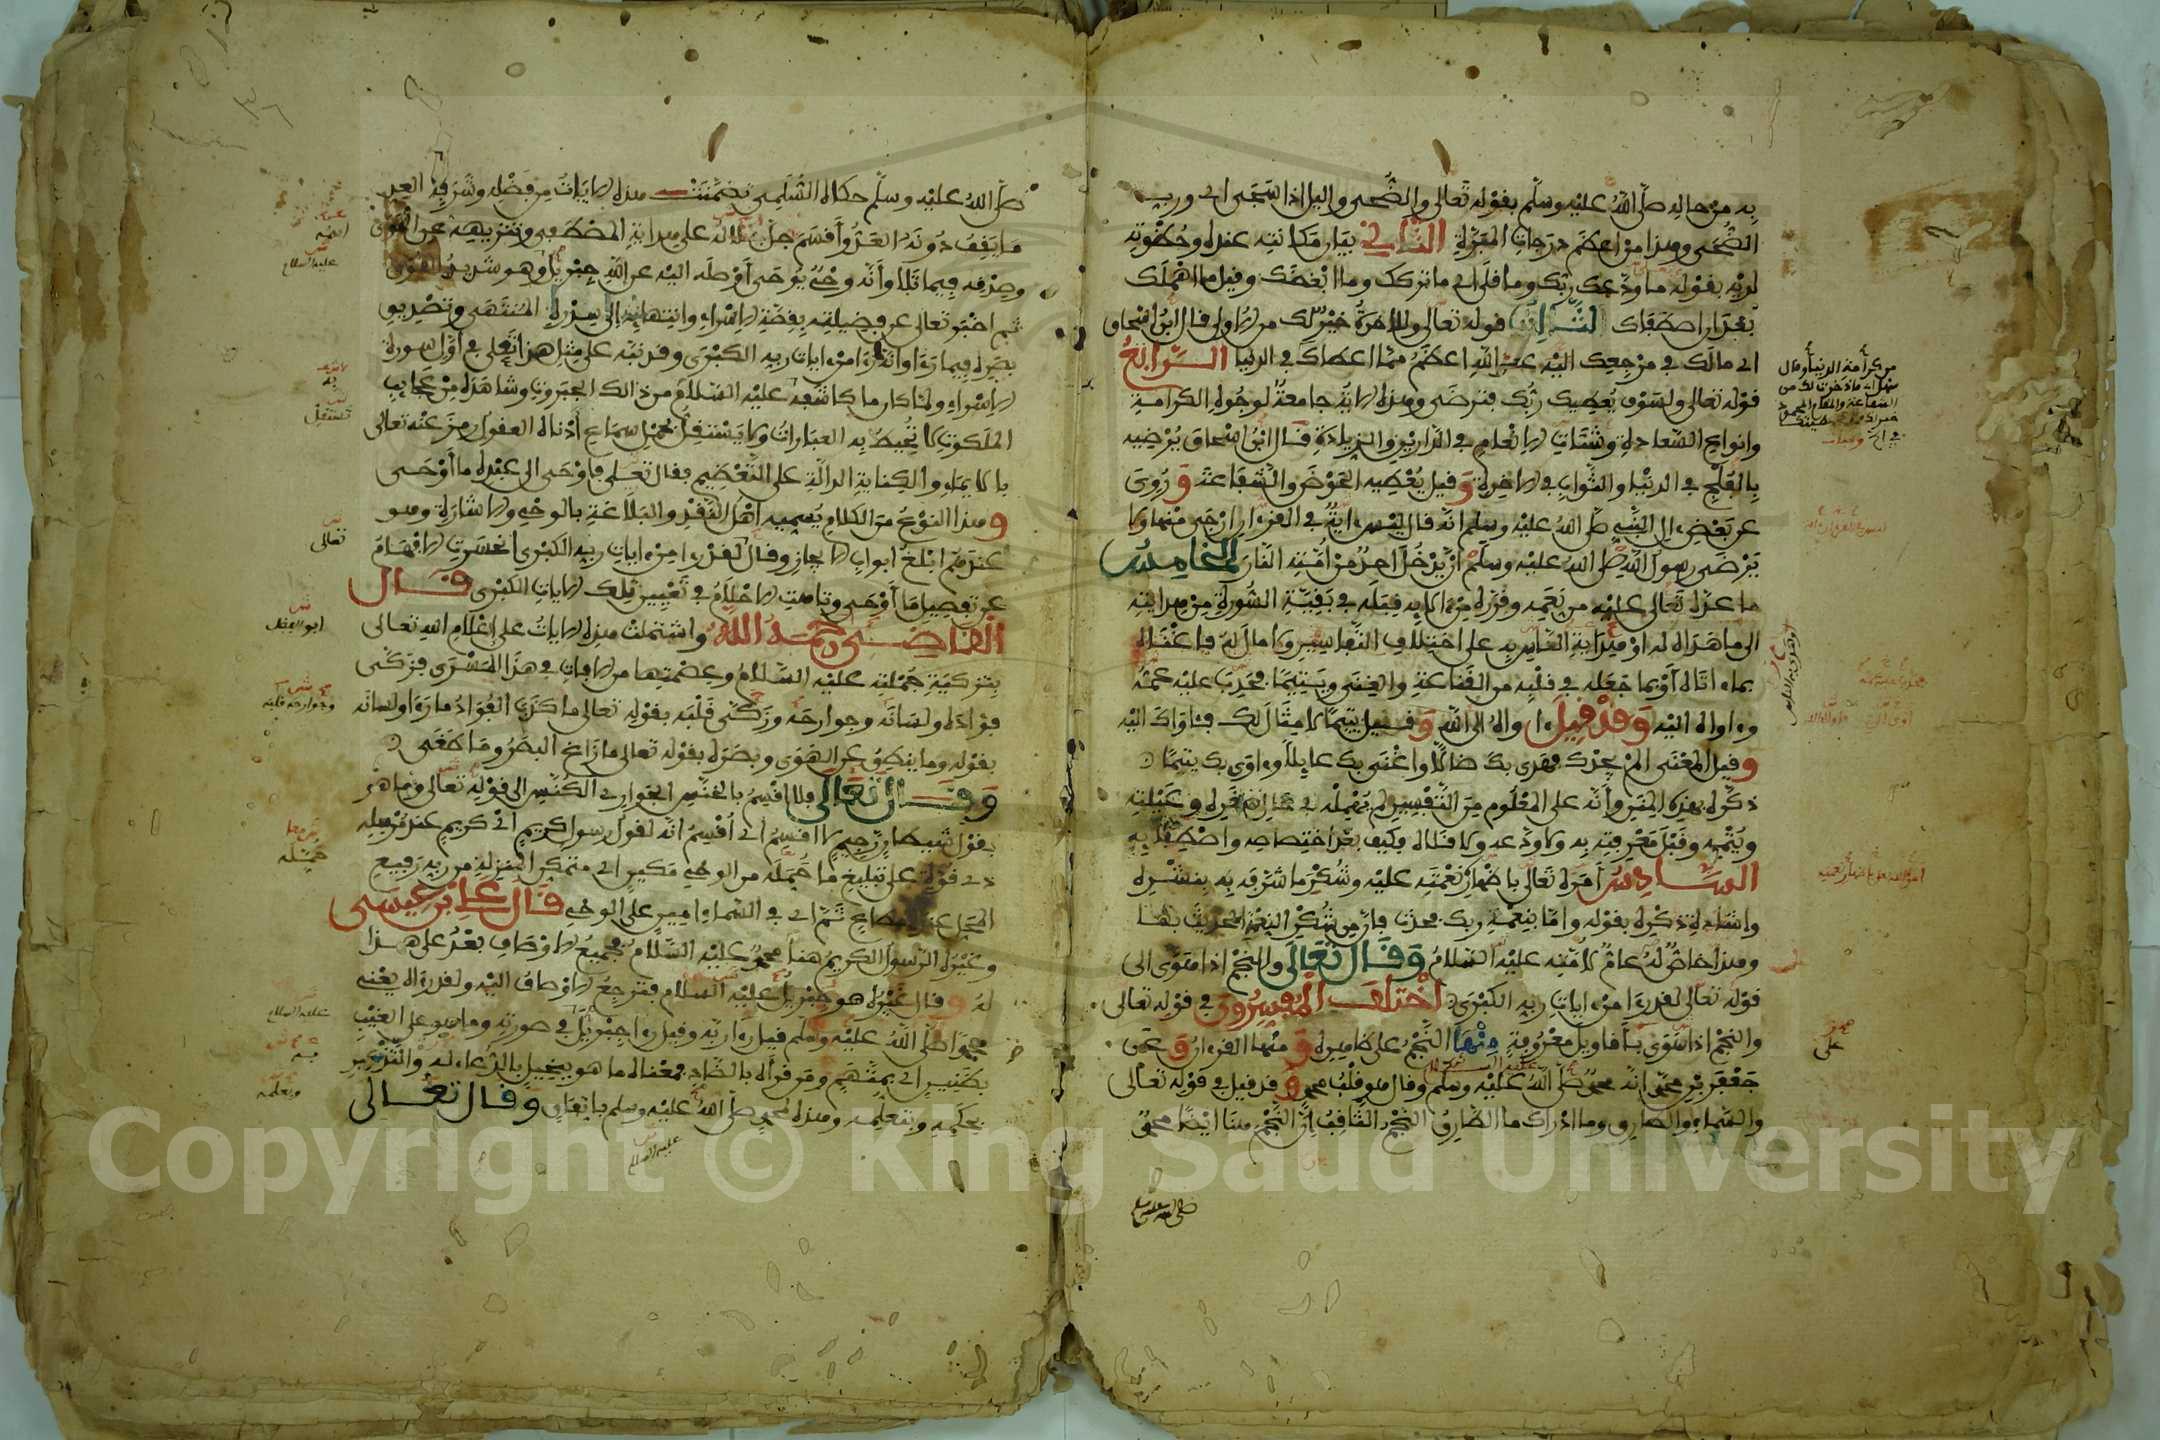 به من حاله صلى الله عليه وسلم بقوله تعالى والضحى واليل اذا سجى اى ورب
الضحى وهذا من اعظم درجات المبرة الثاني بيان مكانته عنده وحظوته
لديه بقوله ما ودعك ربك وما قلى اى ما تركك وما ابغضك وقيل ما اهملك
بعد ان اصطفاك الثالث قوله تعالى وللاخرة خير لك من الاولى قال ابن اسحاق
اى مالك في مرجعك اليه عند الله اعظم مما اعطاك في الدنيا الرابع
قوله تعالى ولسوف يعطيك ربك فترضى وهذه الاية جامعة لوجوه الكرامة
وانواع السعادة وشتات الانعام في الدارين والزيادة قال ابن اسحاق يرضيه
بالفلج في الدنيا والثواب في الاخرة وقيل يعطيه الحوض والشفاعة وروى
عن بعض ال النبي صلى الله عليه وسلم انه قال ليس ءاية في القرءان ارجى منها ولا
يرضى رسول الله صلى الله عليه وسلم ان يدخل احد من امته النار الخامس
ما عده تعالى عليه من نعمه وقرره من ءالايه قبله في بقية السورة من هدايته
الى ما هداه له او هداية الناس به على اختلاف التفاسير ولا مال له فاغناه
بما ءاتاه او بما جعله في قلبه من القناعة والغنى ويتيما فحدب عليه عمه
وءاواه اليه وقد قيل ءاواه الى الله وقيل يتيما لا مثال لك فئاواك اليه
وقيل المعنى الم يجدك فهدى بك ضالا واغنى بك عايلا وءاوى بك يتيما
ذكره بهذه المنن وأنه على المعلوم من التفسير لم يهمله في حال صغره وعيلته
ويتمه وقبل معرفته به ولا ودعه ولا قلاه فكيف بعد اختصاصه واصطفايه
السادس أمره تعالى باظهار نعمته عليه وشكر ما شرفه به بنشره
واشادة ذكره بقوله واما بنعمة ربك فحدث فإن من شكر النعمة الحديث بها
وهذا خاص له عام لامته عليه السلام وقال تعالى والنجم اذا هوى الى
قوله تعالى لقد رءا من ءايات ربه الكبرى اختلف المفسرون في قوله تعالى
والنجم اذا هوى بأقاويل معروفة منها النجم على ظاهره ومنها القرءان وعن
جعفر بن محمد انه محمد صلى الله عليه وسلم وقال هو قلب محمد وقد قيل في قوله تعالى
والسماء والطارق وما ادراك ما الطارق النجم الثاقب إن النجم هنا ايضا محمد
صلى الله عليه وسلم
من كرامة الدنيا وقال
سهل اى ما ذخرت لك من
الشفاعة والمقام المحمود
خير لك مما اعطيتك
في الدنيا
صلى الله عليه وسلم حكاه السلمي تضمنت هذه الايات من فضله وشرفه العد
ما يقف دونه العد وأقسم جل جلاله على هداية المصطفى وتنزيهه عن الهوى
وصدقه فيما تلا وأنه وحي يوحى أوصله اليه عن الله جبريل وهو شديد القوى
ثم اخبر تعالى عن فضيلته بقصة الاسراء وانتهايه الى سدرة المنتهى وتصديق
بصره فيما رءا وانه رءا من ءايات ربه الكبرى وقد نبه على مثل هذا تعلى في أول سورة
الاسراء ولما كان ما كاشفه عليه السلام من ذلك الجبروت وشاهده من عجايب
الملكوت لا تحيط به العبارات ولا تستقل بحمل سماع أدناه العقول رمز عنه تعالى
بالايماء والكناية الدالة على التعظيم فقال تعلى فاوحى الى عبده ما أوحى
وهذا النوع من الكلام يسميه أهل النقد والبلاغة بالوحي والاشارة وهو
عندهم ابلغ ابواب الايجاز وقال لقد رءا من ءايات ربه الكبرى انحسرت الافهام
عن تفصيل ما أوحى وتاهت الاحلام في تعيين تلك الايات الكبرى قال
القاضي رحمه الله واشتملت هذه الايات على إعلام الله تعالى
بتزكية جملته عليه السلام وعصمتها من الافات في هذا المسرى فزكى
فؤاده ولسانه وجوارحه وزكى قلبه بقوله تعالى ما كذب الفؤاد ما رءا ولسانه
بقوله وما ينطق عن الهوى وبصره بقوله تعالى ما زاغ البصر وما طغى
وقال تعالى فلا اقسم بالخنس الجوار الكنس الى قوله تعالى وما هو
بقول شيطان رجيم لا اقسم أي أقسم انه لقول رسول كريم أي كريم عند مرسله
ذي قوة على تبليغ ما حمله من الوحي مكين اى متمكن المنزلة من ربه رفيع
المحل عنده مطاع ثم اى في السماء امين على الوحي قال علي بن عيسى
وغيره الرسول الكريم هنا محمد عليه السلام فجميع الاوصاف بعد على هذا
له وقال غيره هو جبريل عليه السلام فترجع الاوصاف اليه ولقد رءاه يعني
محمدا صلى الله عليه وسلم قيل رءا ربه وقيل رءا جبريل في صورته وما هو على الغيب
بظنين اى بمتهم ومن قرأه بالضاد فمعناه ما هو ببخيل بالدعاء له والتذكير
بحكمه وبتعلمه وهذه لمحمد صلى الله عليه وسلم باتفاق وقال تعالى
عليه السلام
تستقل
تعالى
ابو الفضل
عليه السلام
Copyright © King Saud University